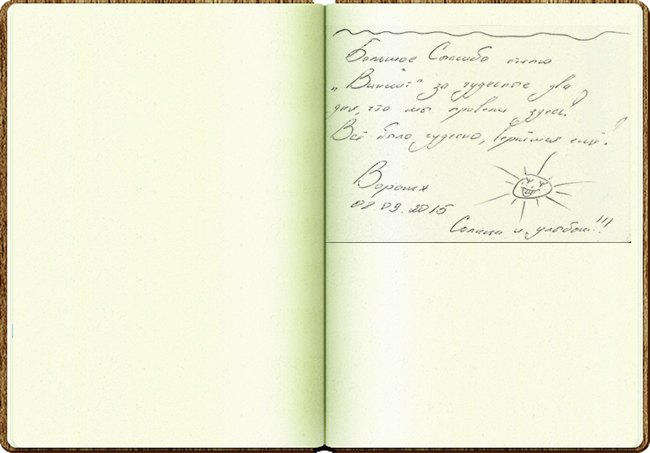 Большое Спасибо отелю
за чудесные два
дня, что мы провели здесь!
Всё было чудесно, вернёмся ещё!
Воронеж
01 09. 2015
Солнца и улыбок!!!